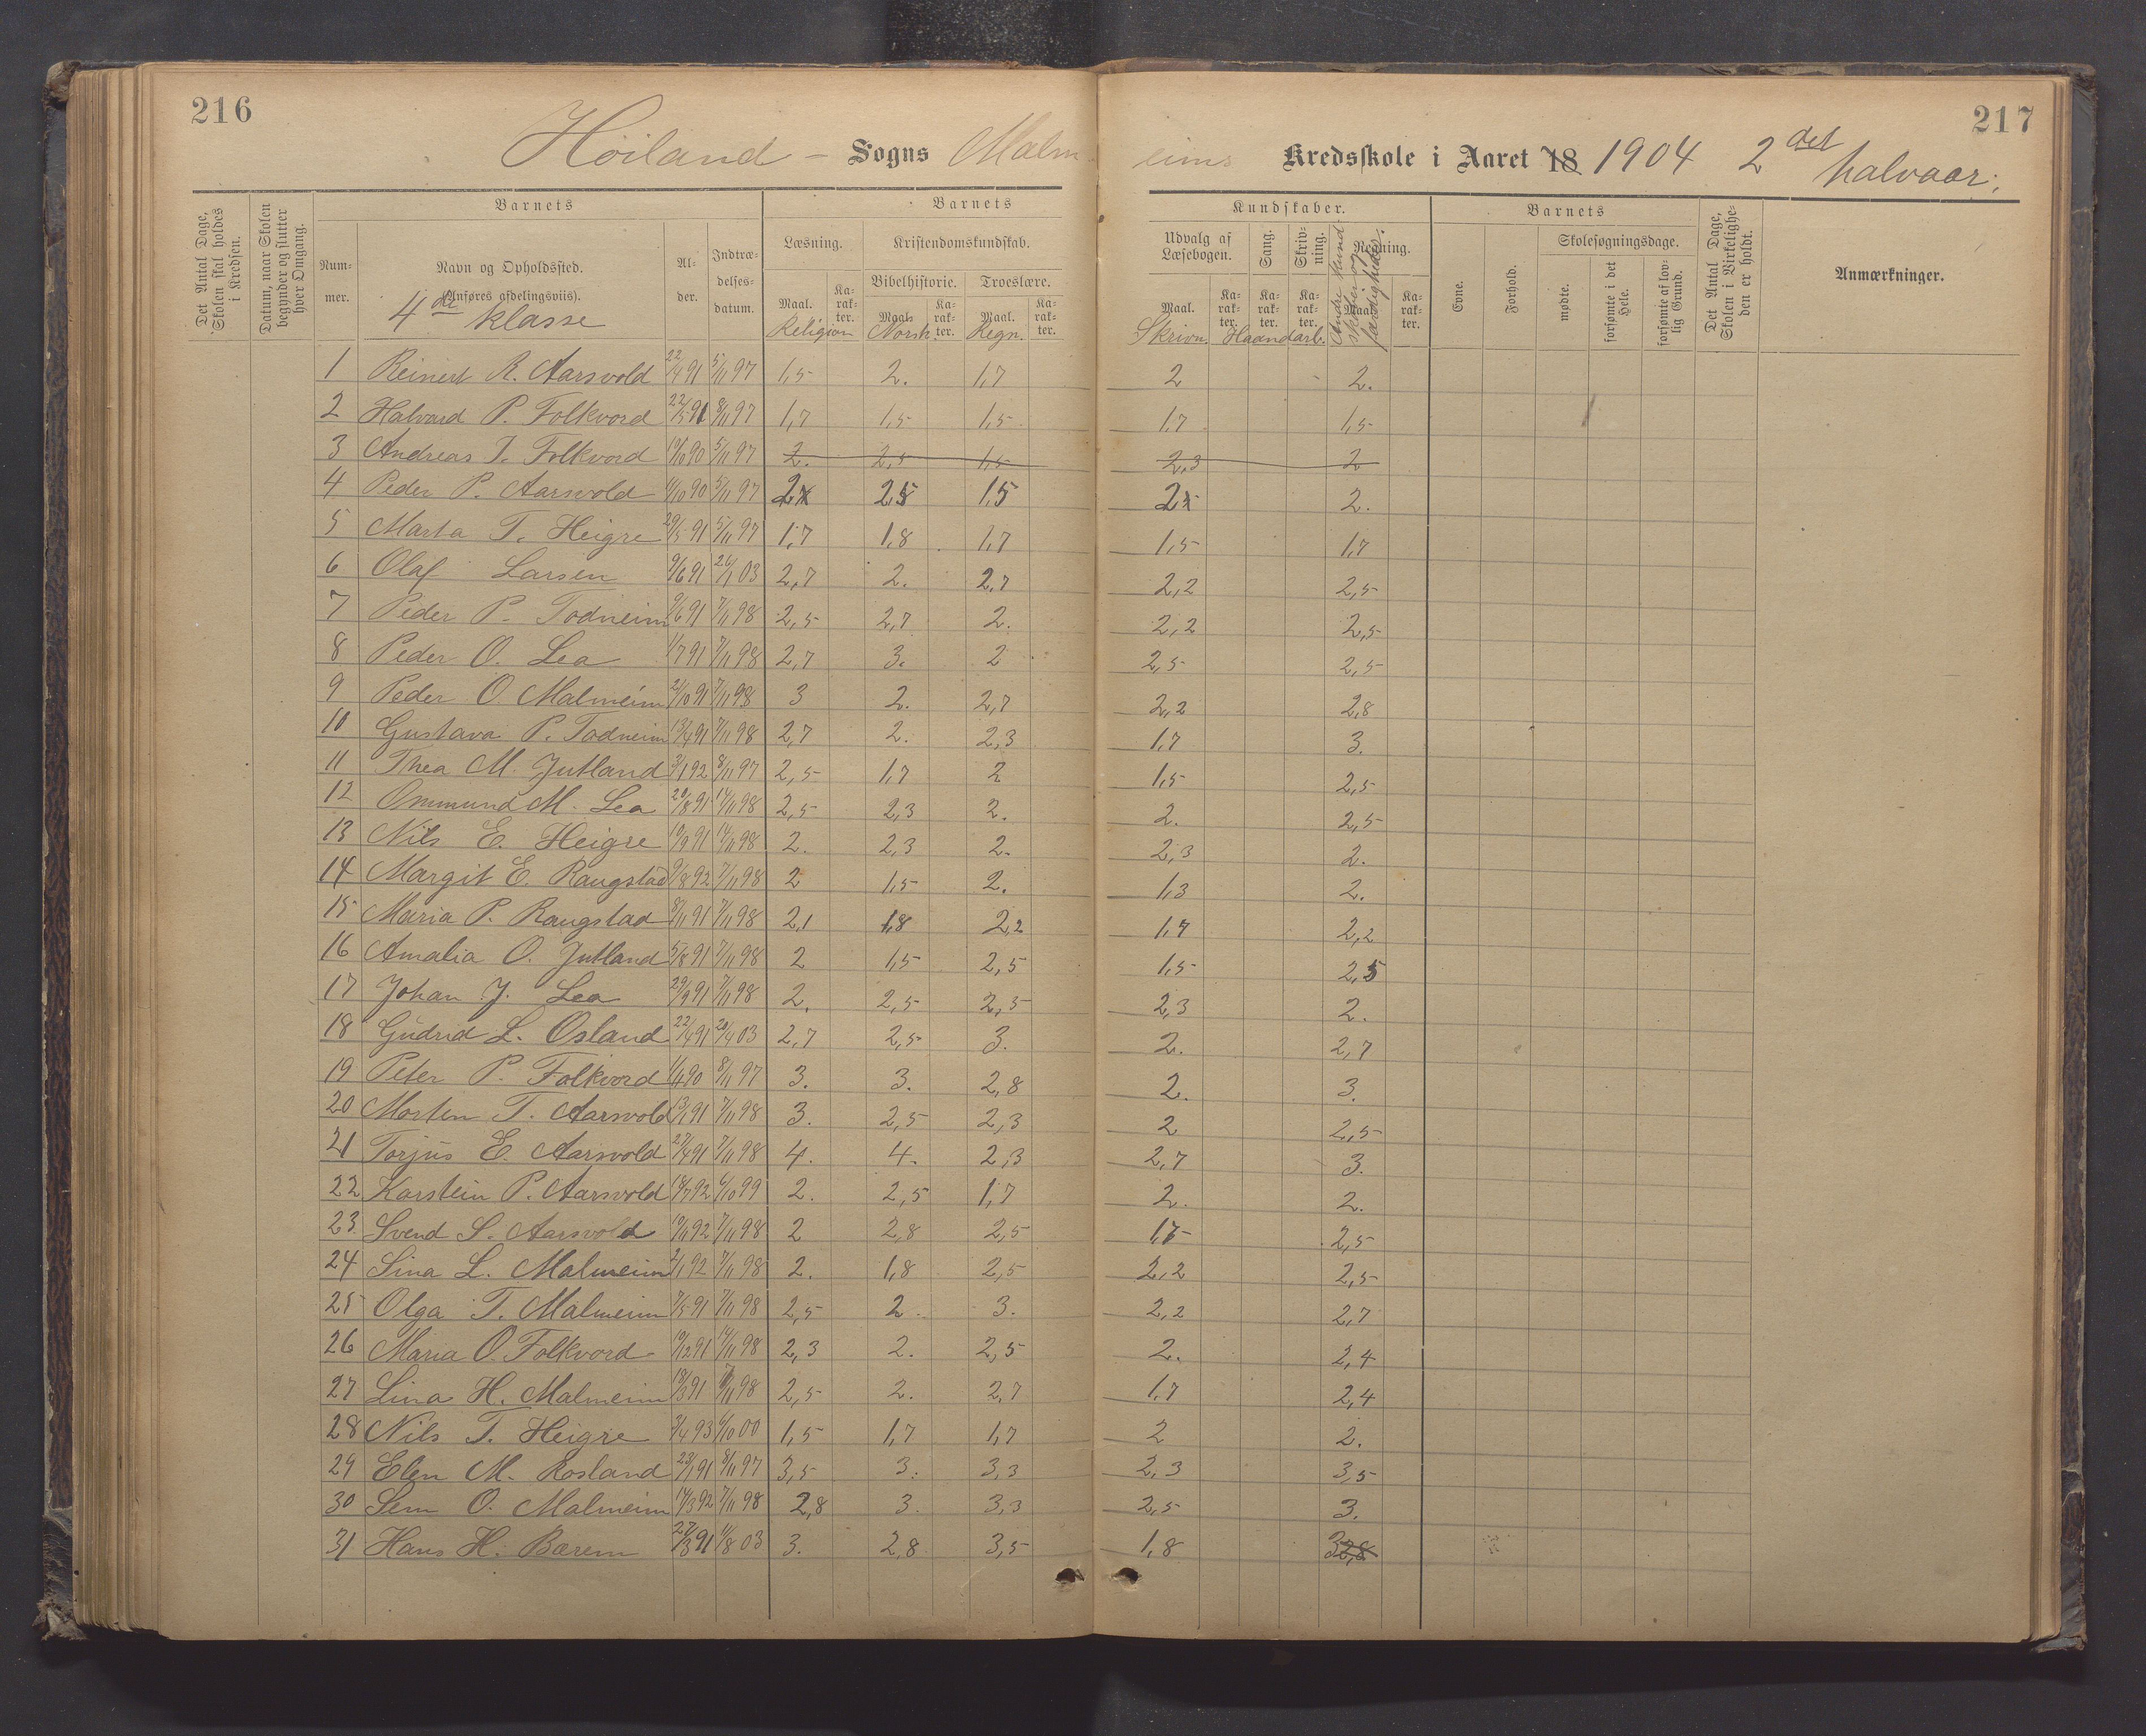 216
217
Høiland - Sogns Malmeims Kredsskole i Aaret 18 1904 2det halvaar.
Det Antal Dage, Skolen skal holdes i Kredsen.
Datum, naar Skolen begynder og slutter hver Omgang.
Barnets
Nummer.
Navn og Opholdssted. (Anføres afdelingsviis).
4de klasse
Alder.
Indtrædelsesdatum.
Barnets
Læsning.
Kristendomskundskab.
Bibelhistorie. Troeslære.
Maal. Karakter. Maal. Karakter. Maal. Karakter.
Religion Norsk. Regn.
Kundskaber.
Udvalg af Læsebogen. Sang. Skrivning. Regning.
Maal. Karakter. Karakter. Karakter. Maal. Karakter.
Skrivn. Haandarb. Andre Kundskaber og færdigheder.
Barnets
Evne. Forhold.
Skolesøgningsdage.
mødte. forsømte i det Hele. forsømte af lovlig Grund.
Det Antal Dage, Skolen i Virkeligheden er holdt.
Anmærkninger.
1 Reinert R. Aarsvold 22/4 91 5/11 97 1,5 2. 1,7 2 2.
2 Halvard P. Folkvord 22/5 91 8/11 97 1,7 1,5 1,5 1,7 1,5
3 Andreas T. Folkvord 5/11 97 2. 2,5 1,5 2,3 2
4 Peder P. Aarsvold 5/11 97 2 2,5 1,5 2 2.
5 Marta T. Heigre 29/5 91 5/11 97 1,7 1,8 1,7 1,5 1,7
6 Olaf Larsen 9/6 91 26/1 03 2,7 2. 2,7 2,2 2,5
7 Peder P. Todneim 9/6 91 7/11 98 2,5 2,7 2. 2,2 2,5
8 Peder O. Lea 1/7 91 7/11 98 2,7 3. 2 2,5 2,5
9 Peder O. Malmeim 21/10 91 7/11 98 3 2. 2,7 2,2 2,8
10 Gustava P. Todneim 13/4 91 7/11 98 2,7 2. 2,3 1,7 3.
11 Thea M. Jutland 3/1 92 8/11 97 2,5 1,7 2 1,5 2,5
12 Ommund M. Lea 20/8 91 14/11 98 2,5 2,3 2. 2. 2,5
13 Nils E. Heigre 10/9 91 14/11 98 2. 2,3 2. 2,3 2.
14 Margit E. Raugstad 9/8 92 7/11 98 2 1,5 2. 1,3 2.
15 Maria P. Raugstad 8/11 91 7/11 98 2,1 1,8 2,2 1,7 2,2
16 Amalia O. Jutland 5/8 91 7/11 98 2 1,5 2,5 1,5 2,5
17 Johan J. Lea 29/9 91 7/11 98 2. 2,5 2,5 2,3 2.
18 Gudrid L. Osland 22/4 91 20/4 03 2,7 2,5 3. 2. 2,7
19 Peter P. Folkvord 8/11 97 3. 3. 2,8 2. 3.
20 Morten T. Aarsvold 13/1 91 7/11 98 3. 2,5 2,3 2 2,5
21 Torjus E. Aarsvold 27/4 91 7/11 98 4. 4. 2,3 2,7 3.
22 Karstein P. Aarsvold 18/7 92 6/10 99 2. 2,5 1,7 2. 2.
23. Svend S. Aarsvold 7/11 98 2 2,8 2,5 1,5 2,5
24 Sina L. Malmeim 2/1 92 7/11 98 2. 1,8 2,5 2,2 2,5
25 Olga T. Malmeim 7/5 91 7/11 98 2,5 2. 3. 2,2 2,7
26 Maria O. Folkvord 10/12 91 14/11 98 2,3 2. 2,5 2. 2,4
27 Lina H. Malmeim 18/3 91 7/11 98 2,5 2. 2,7 1,7 2,4
28 Nils T. Heigre 3/4 93 6/10 00 1,5 1,7 1,7 2 2.
29 Elen M. Rosland 23/1 91 8/11 97 3,5 3. 3,3 2,3 3,5
30 Sem O. Malmeim 14/3 92 7/11 98 2,8 3. 3,3 2,5 3.
31 Hans H. Bærem 27/3 91 11/8 03 3. 2,8 3,5 1,8 3 2,8